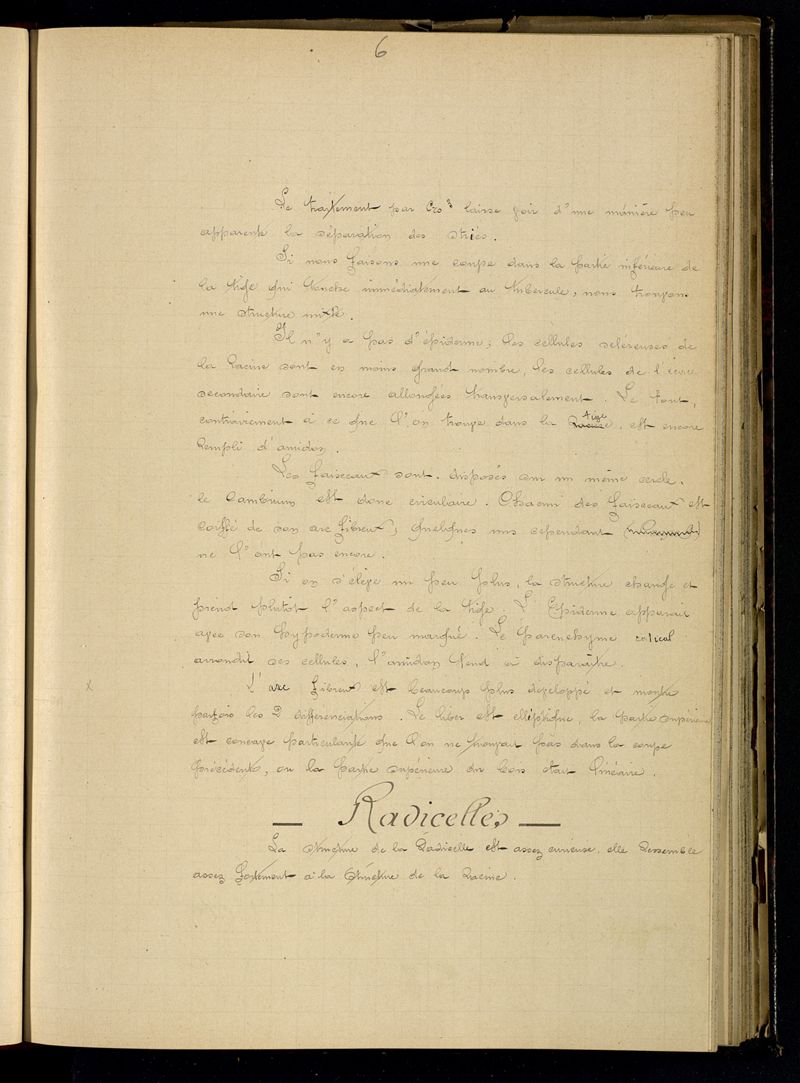 6
Le traitement par Cro³ laisse voir d'une manière peu
apparente la séparation des stries.
Si nous faisons une coupe dans la partie inférieure de
la tige qui touche immédiatement au tubercule, nous trouvons
une structure mixte.
Il n'y a pas d'épiderme; les cellules scléreuses de
la Racine sont en moins grand nombre, les cellules de l'écorce
secondaire sont encore allongées transversalement. Le tout,
contrairement à ce que l'on trouve dans la tige, est encore
rempli d'amidon.
Les faisceaux sont disposés sur un même cercle,
le Cambium est donc circulaire. Chacun des faisceaux est
coiffé de son arc fibreux; quelques uns cependant
ne l'ont pas encore.
Si on s'élève un peu plus, la structure change et
prend plutôt l'aspect de la tige. L'Epiderme apparait
avec son hypoderme peu marqué. Le parenchyme cortical
arrondit ses cellules, l'amidon tend à disparaître.
x L'arc fibreux est beaucoup plus développé et montre
parfois les différenciations. Le liber est elliptique, la partie supérieure
est concave particularité que l'on ne trouvait pas dans la coupe
précédente, ou la partie supérieure du bois était linéaire.
— Radicelles —
La structure de la Radicelle est assez curieuse, elle Ressemble
assez fortement à la structure de la Racine.